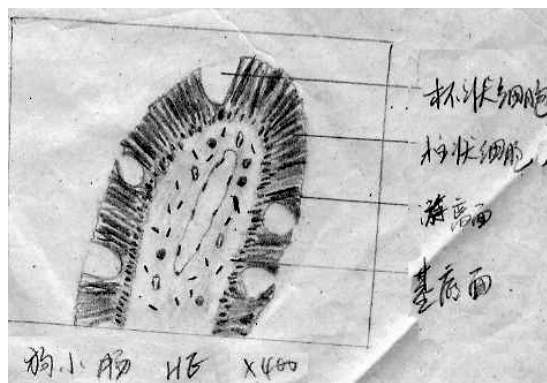 杯状细胞
柱状细胞
游离面
基底面
狗小肠 HE ×400